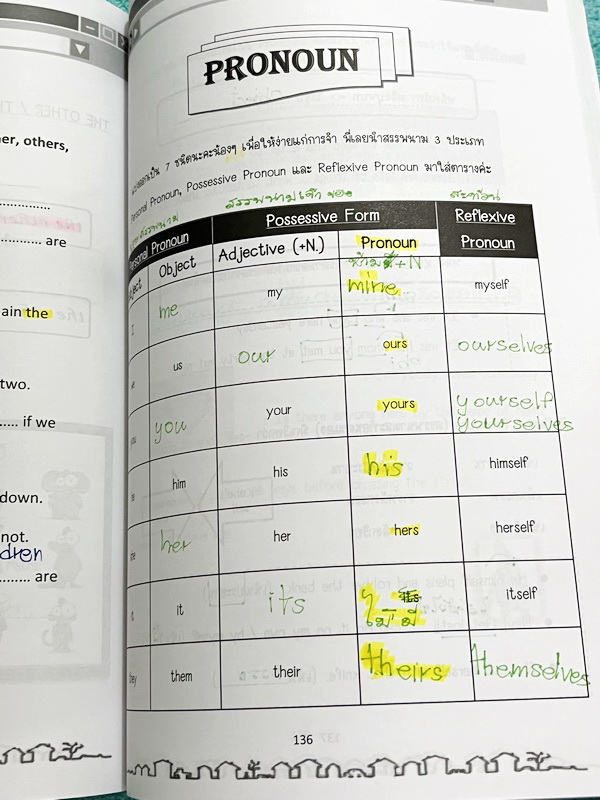 er, others,
are
ain the
two.
if we
down.
not.
dren
are
PRONOUN
7 ชนิดนะคะน้องๆ เพื่อให้ง่ายแก่การจำ พี่เลยนำสรรพนาม 3 ประเภท
Personal Pronoun, Possessive Pronoun และ Reflexive Pronoun มาใส่ตารางค่ะ
สรรพนามเจ้าของ สะท้อน
Personal Pronoun Possessive Form Reflexive Pronoun
Object Adjective (+N.) Pronoun
ห้าม +N
I me my mine myself
us our ours ourselves
you your yours yourself
yourselves
him his his himself
her her hers herself
it it its its itself
ไม่มี
they them their theirs themselves
136